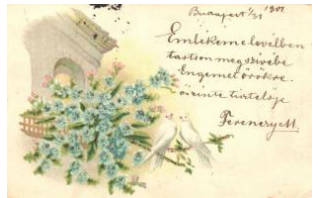 Budapest 1/31 1901
Emlékeme levélben
tartson meg szivébe
Engemet örökre.
őszinte tisztelője
Ferenczy M.